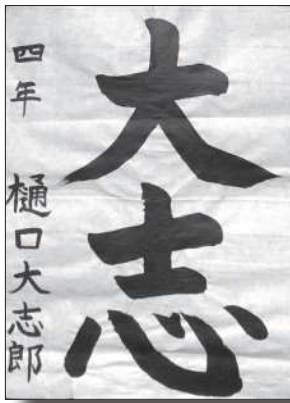 大志
四年 樋口大志郎